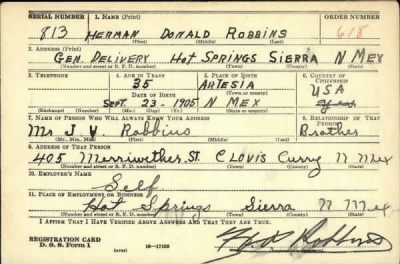 SERIAL NUMBER 1. NAME (Print) ORDER NUMBER
813 HERMAN DONALD ROBBINS 618
(First) (Middle) (Last)
2. ADDRESS (Print)
GEN. DELIVERY HOT SPRINGS SIERRA N MEX
(Number and street or R. F. D. number) (Town) (County) (State)
3. TELEPHONE 4. AGE IN YEARS 5. PLACE OF BIRTH 6. COUNTRY OF CITIZENSHIP
35 ARTESIA USA
DATE OF BIRTH (Town or county)
SEPT. 23-1905 N MEX
(Exchange) (Number) (Mo.) (Day) (Yr.) (State or country)
7. NAME OF PERSON WHO WILL ALWAYS KNOW YOUR ADDRESS 8. RELATIONSHIP OF THAT PERSON
Mr J. V. Robbins Brother
(Mr., Mrs., Miss) (First) (Middle) (Last)
9. ADDRESS OF THAT PERSON
405 Merriwether. St CLOVIS Curry N Mex
(Number and street or R. F. D. number) (Town) (County) (State)
10. EMPLOYER'S NAME
Self
11. PLACE OF EMPLOYMENT OR BUSINESS
Hot Springs Sierra N Mex
(Number and street or R. F. D. number) (Town) (County) (State)
I AFFIRM THAT I HAVE VERIFIED ABOVE ANSWERS AND THAT THEY ARE TRUE.
REGISTRATION CARD
D. S. S. Form 1 (over) 16-17105 Robbins